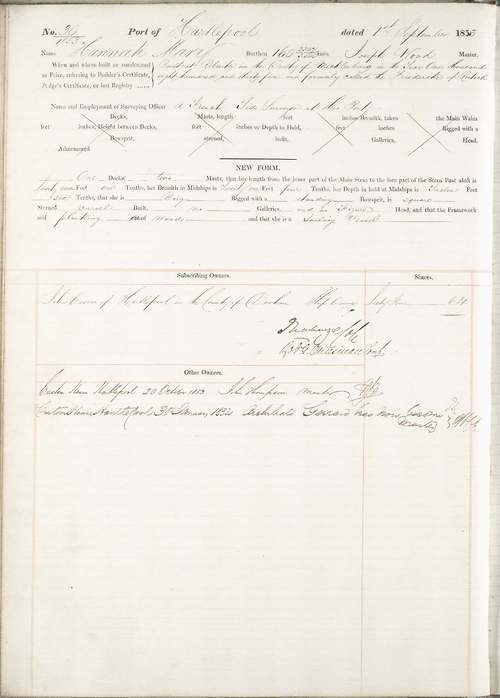 No. 39 Port of Hartlepool dated 1st September 185
Name Hannah Mary Burthen 160 Tons. Joseph Wood Master.
When and where built or condemned Built at in the County of in the Year One thousand
as Prize, referring to Builder's Certificate, eight hundred and thirty five and formerly called the Frederick of
Judge's Certificate, or last Registry
Name and Employment of Surveying Officer A French Tide Surveyor at this Port
Decks, Masts, length feet inches Breadth, taken the Main Wales
feet inches, Height between Decks, feet inches or Depth in Hold, feet inches Rigged with a
Bowsprit, sterned, built, Galleries, Head,
Admeasured
NEW FORM.
One Decks two Masts, that her length from the inner part of the Main Stem to the fore part of the Stern Post aloft is
Feet one Tenths, her Breadth in Midships is Twenty one Feet four Tenths, her Depth in hold at Midships is Twelve Feet
two Tenths, that she is Brig Rigged with a standing Bowsprit, is square
Sterned Carvel Built, no Galleries, and no Figure Head, and that the Framework
and planking of wood and that she is a Sailing Vessel
Subscribing Owners. Shares.
John of Hartlepool in the County of Durham Ship Owner Sixty four 64
Other Owners.
Custom House Hartlepool 20 October 1853 John Thompson Master
Custom House Hartlepool 31 January 1854 Archibald Gerrard has now become Master